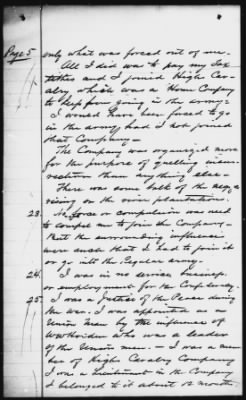 Page 5
only what was forced out of me.
All I did was to pay my Tax
tithes and I joined High Cav-
alry which was a Home Company
to keep from going in the army.
I would have been forced to go
in the army, had I not joined
that Company.
The Company was organized more
for the purpose of quelling insur-
rection than anything else.
There was some talk of the negroes
rising on the river plantations.
23. No force or compulsion was used
to compel me to join the Company.
But the surrounding influences
were such that I had to join it
or go into the Regular army.
24. I was in no service, business,
or employment for the Confederacy.
25. I was a Justice of the Peace during
the war. I was appointed as a
Union man by the influence of
who was a leader
of the Union men. I was a mem-
ber of Highs Cavalry Company
I was a Lieutenant in the Company
I belonged to it about 12 months.